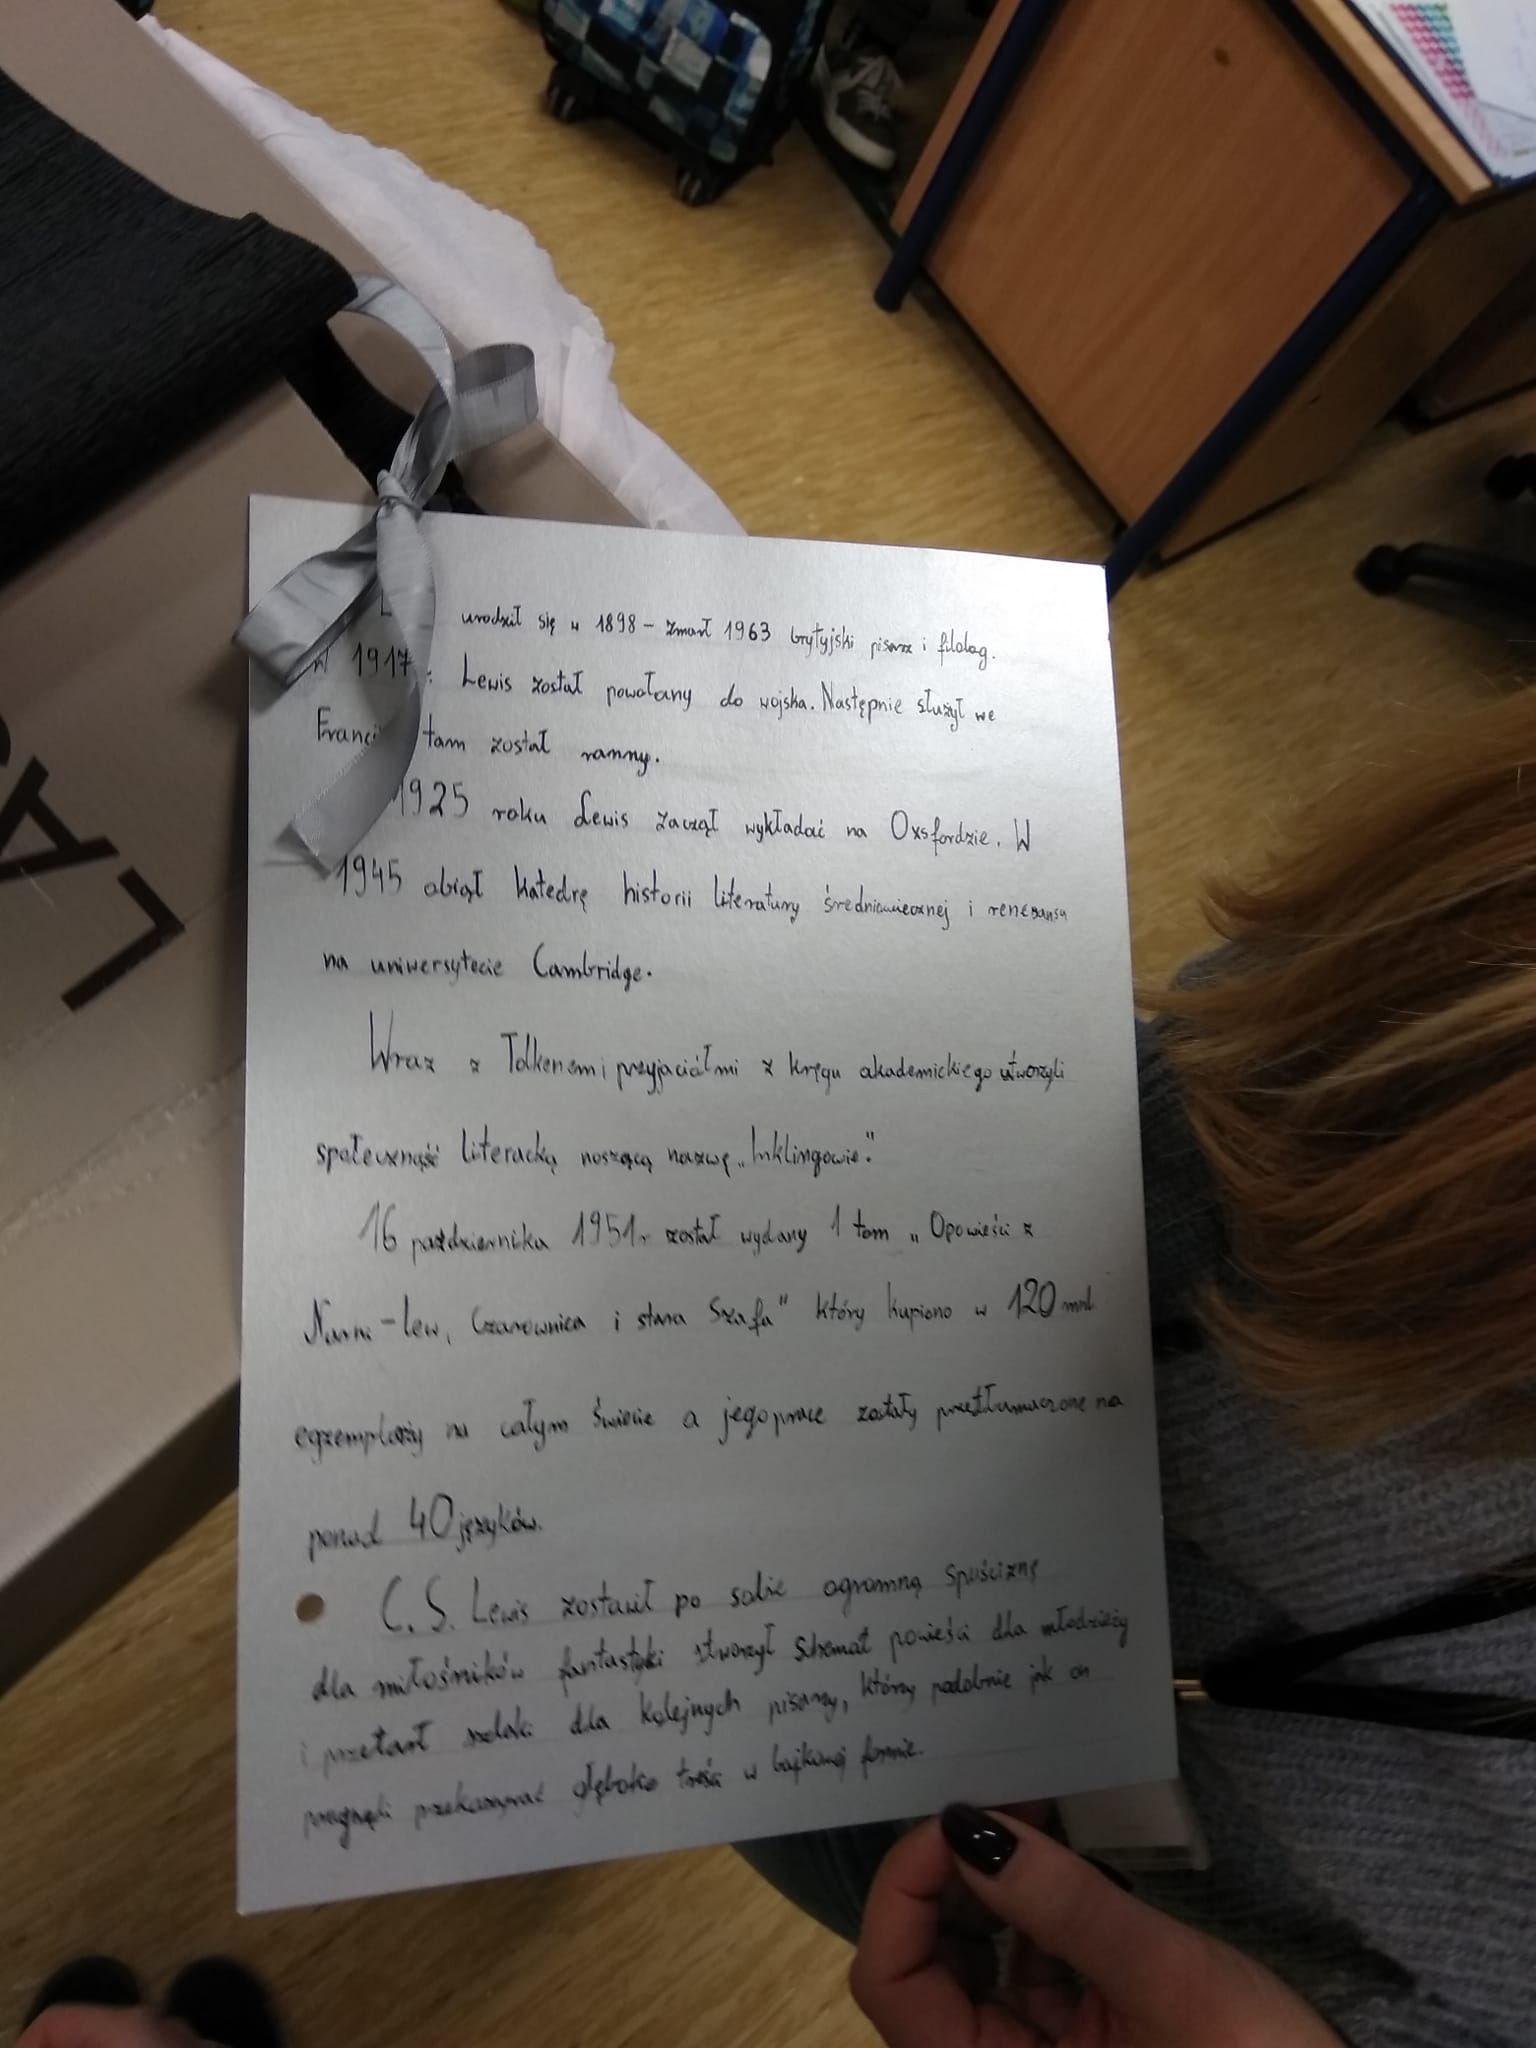 urodził się w 1898 - zmarł 1963 brytyjski pisarz i filolog.
W 1917 r. Lewis został powołany do wojska. Następnie służył we
Francji tam został ranny.
1925 roku Lewis zaczął wykładać na Oxsfordzie. W
1945 objął katedrę historii literatury średniowiecznej i renesansu
na uniwersytecie Cambridge.
Wraz z Tolkenem i przyjaciółmi z kręgu akademickiego utworzyli
społeczność literacką noszącą nazwę „Inklingowie".
16 października 1951r został wydany 1 tom „Opowieści z
Narni - lew, Czarownica i stara Szafa" który kupiono w 120 mnl
egzemplarzy na całym świecie a jego prace zostały przetłumaczone na
ponad 40 języków.
C. S. Lewis zostawił po sobie ogromną spuściznę
dla miłośników fantastyki stworzył schemat powieści dla młodzieży
i przetarł szlaki dla kolejnych pisarzy, którzy podobnie jak on
pragnęli przekazywać głębokie treści w bajkowej formie.
LA